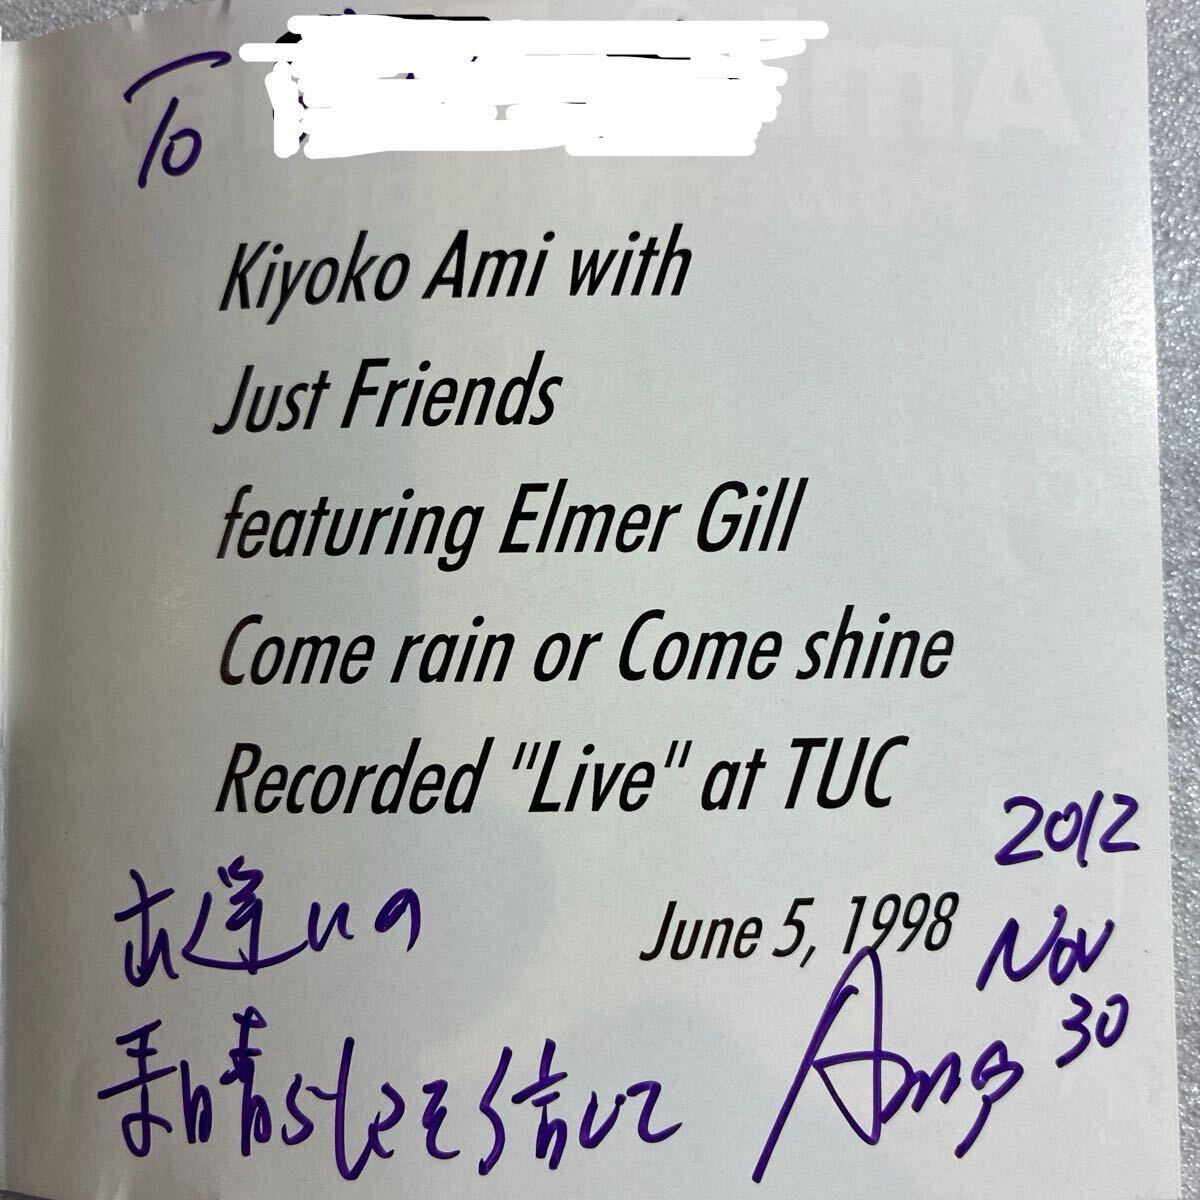 To
Kiyoko Ami with
Just Friends
featuring Elmer Gill
Come rain or Come shine
Recorded "Live" at TUC
June 5, 1998
2012
Nov
30
お逢いの
素晴らしさを信じて
Ami